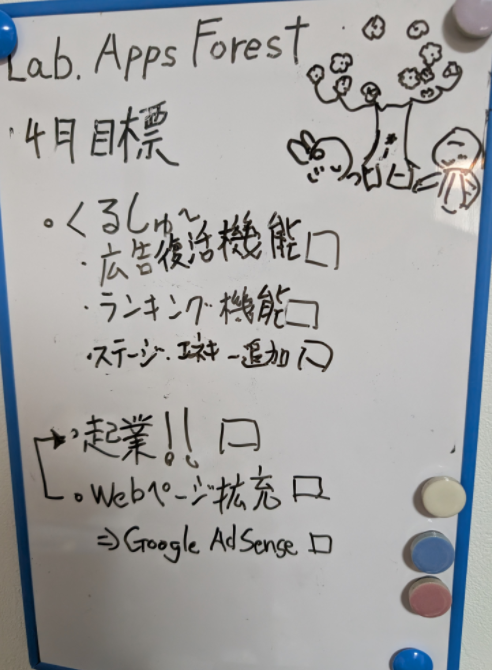 Lab. Apps Forest
・4月目標
。くるしゅ〜
・広告復活機能□
・ランキング機能□
・ステージ・エネキー追加□
→・起業!! □
。Webページ拡充 □
⇒Google AdSense □